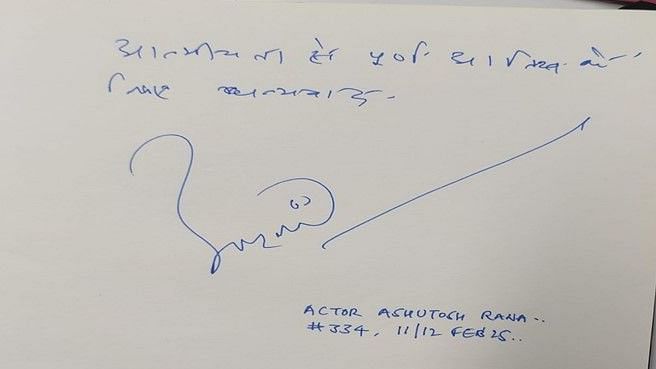 आत्मीयता से पूर्ण आतिथ्य के
लिए धन्यवाद.
ACTOR ASHUTOSH RANA..
#334, 11/12 FEB25..